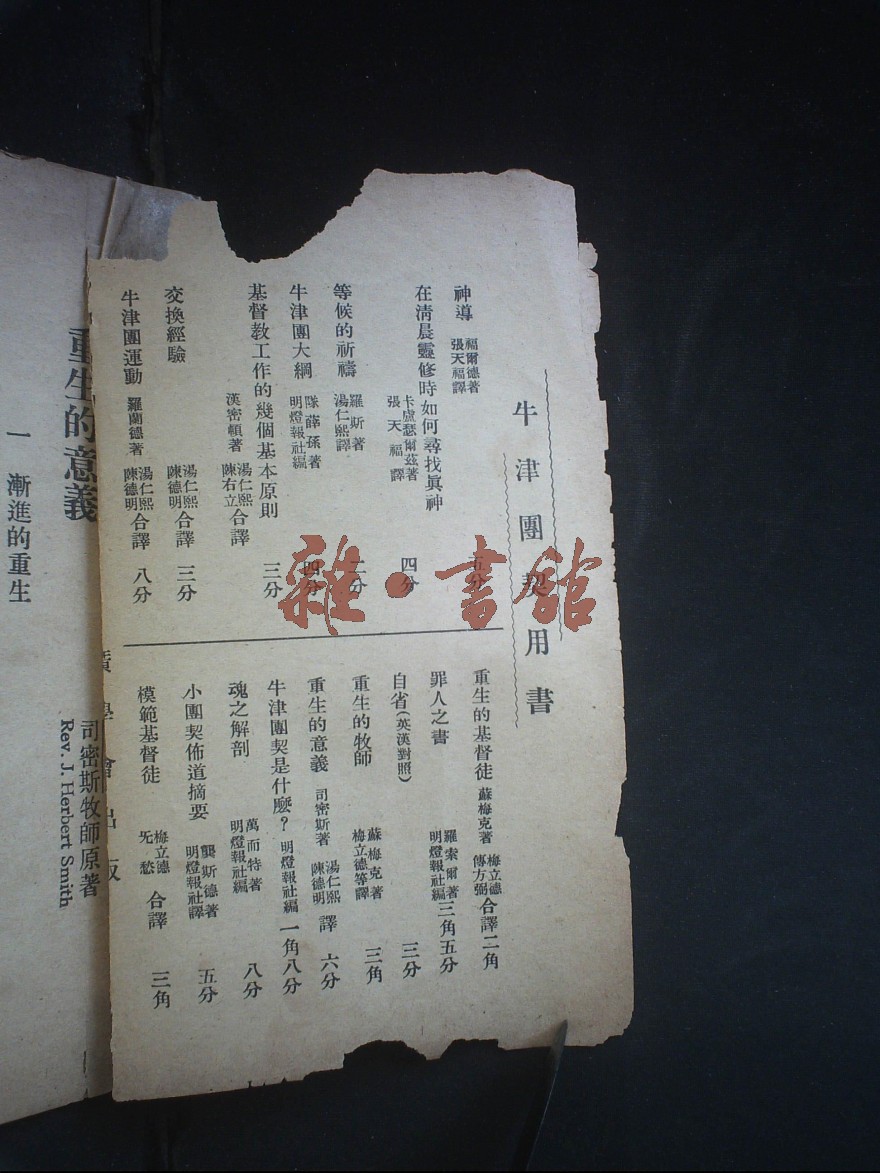 牛津團契用書
神導 福爾德著 張天福譯 五分
在清晨靈修時如何尋找眞神
卡盧瑟爾茲著 張天福譯 四分
等候的祈禱 羅斯著 湯仁熙譯 二分
牛津團大綱 隊薛孫著 明燈報社編 四分
基督教工作的幾個基本原則
漢密頓著 湯仁熙 陳右立 合譯 三分
交換經驗 湯仁熙 陳德明 合譯 三分
牛津團運動 羅蘭德著 湯仁熙 陳德明 合譯 八分
重生的基督徒 蘇梅克著 梅立德 傅方弼 合譯 二角
罪人之書 羅索爾著 明燈報社編 三角五分
自省(英漢對照) 三分
重生的牧師 蘇梅克著 梅立德等譯 三角
重生的意義 司密斯著 湯仁熙 陳德明 譯 六分
牛津團契是什麽? 明燈報社編 一角八分
魂之解剖 萬而特著 明燈報社編 八分
小團契佈道摘要 龔斯德著 明燈報社譯 五分
模範基督徒 梅立德 旡愁 合譯 三角
廣學會出版
重生的意義
司密斯牧師原著
Rev. J. Herbert Smith
一 漸進的重生
雜·書館